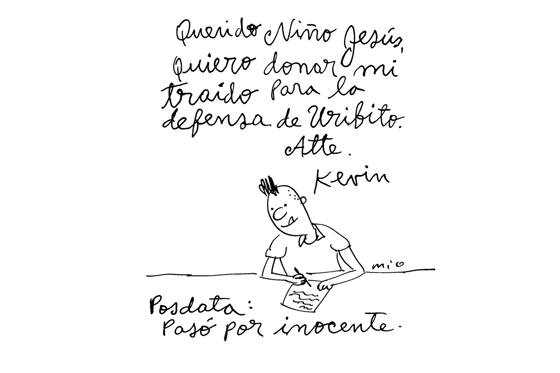 Querido Niño Jesús,
Quiero donar mi
traido para la
defensa de Uribito.
Atte.
Kevin
mico
Posdata:
Pasó por inocente.